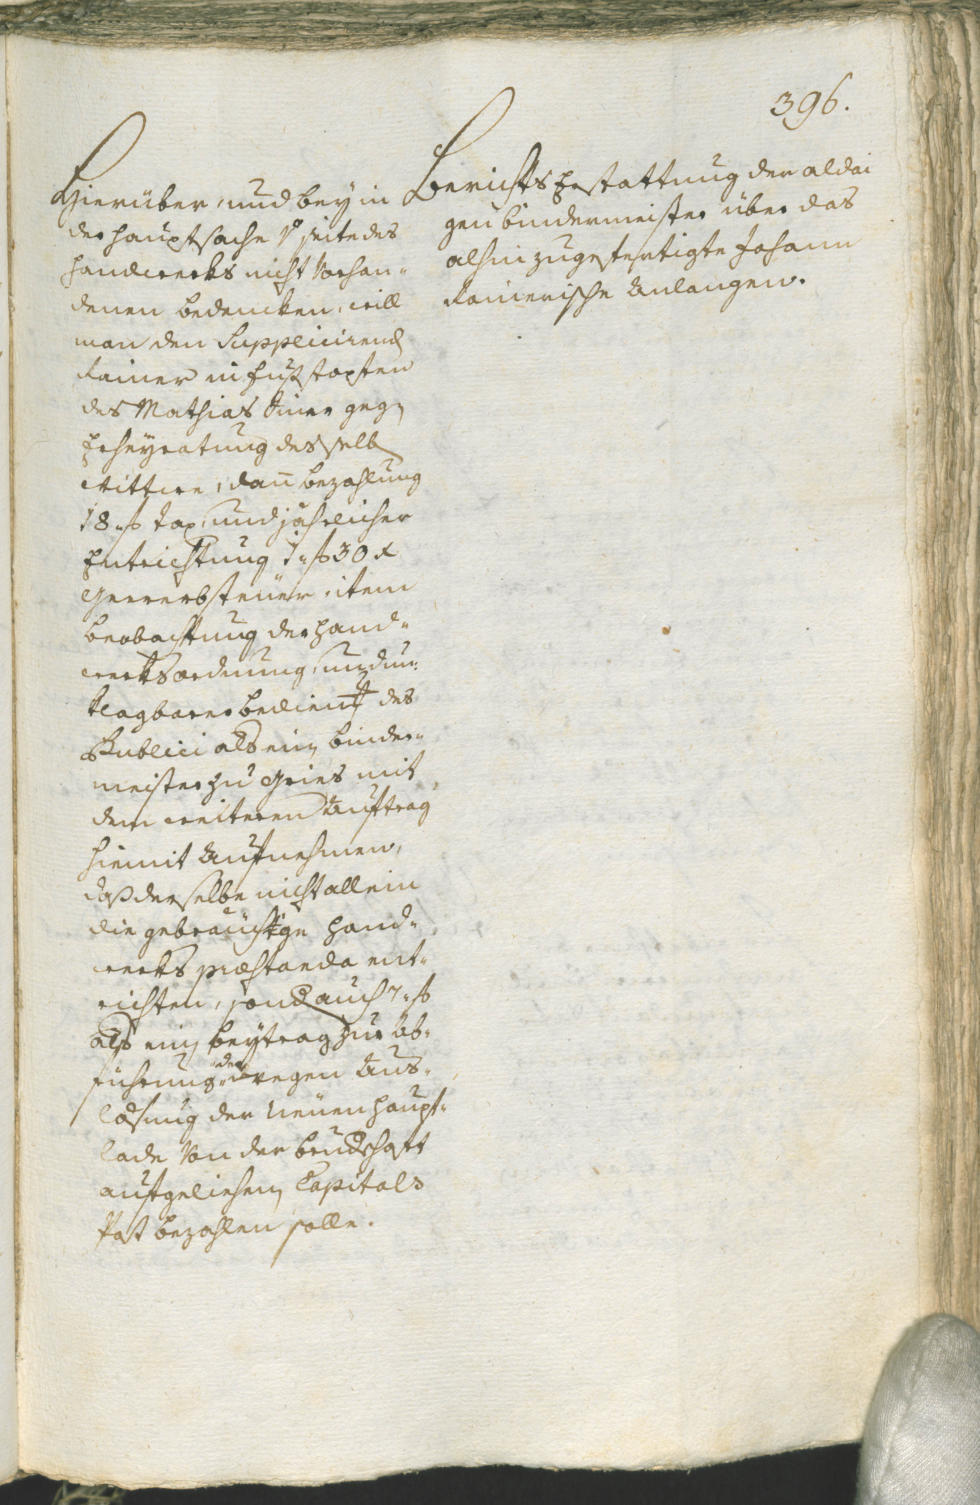 396.
Hierüber, und bey in
der hauptsache vo seite des
handwerks nicht vorhan-
denen bedencken, will
man den Supplicirend
Rainer in fußstapfen
des Mathias geg
Erheyratung desselb
Wittwe, dan bezahlung
18 f tax, und jährlicher
Entrichtung 1 f 30 x
Gewerbsteüer, item
beobachtung der hand-
werksordnung, und un-
klagbarer bedienung des
Publici als ein binder-
meister zu Gries mit
dem weiteren Auftrag
hiemit Aufnehmen,
daß derselbe nicht allein
die gebräuchige hand-
werks præstanda ent-
richten, sond auch 7 f
als ein beytrag zur ab-
führung des wegen Aus-
lösung der neüen haupt-
lade von der brudschaft
aufgeliehen Capitals
bezahlen solle.
Berichts Erstattung der aldai
gen bindermeister über das
alhin zugefertigte Johann
Rainerische Anlangen.